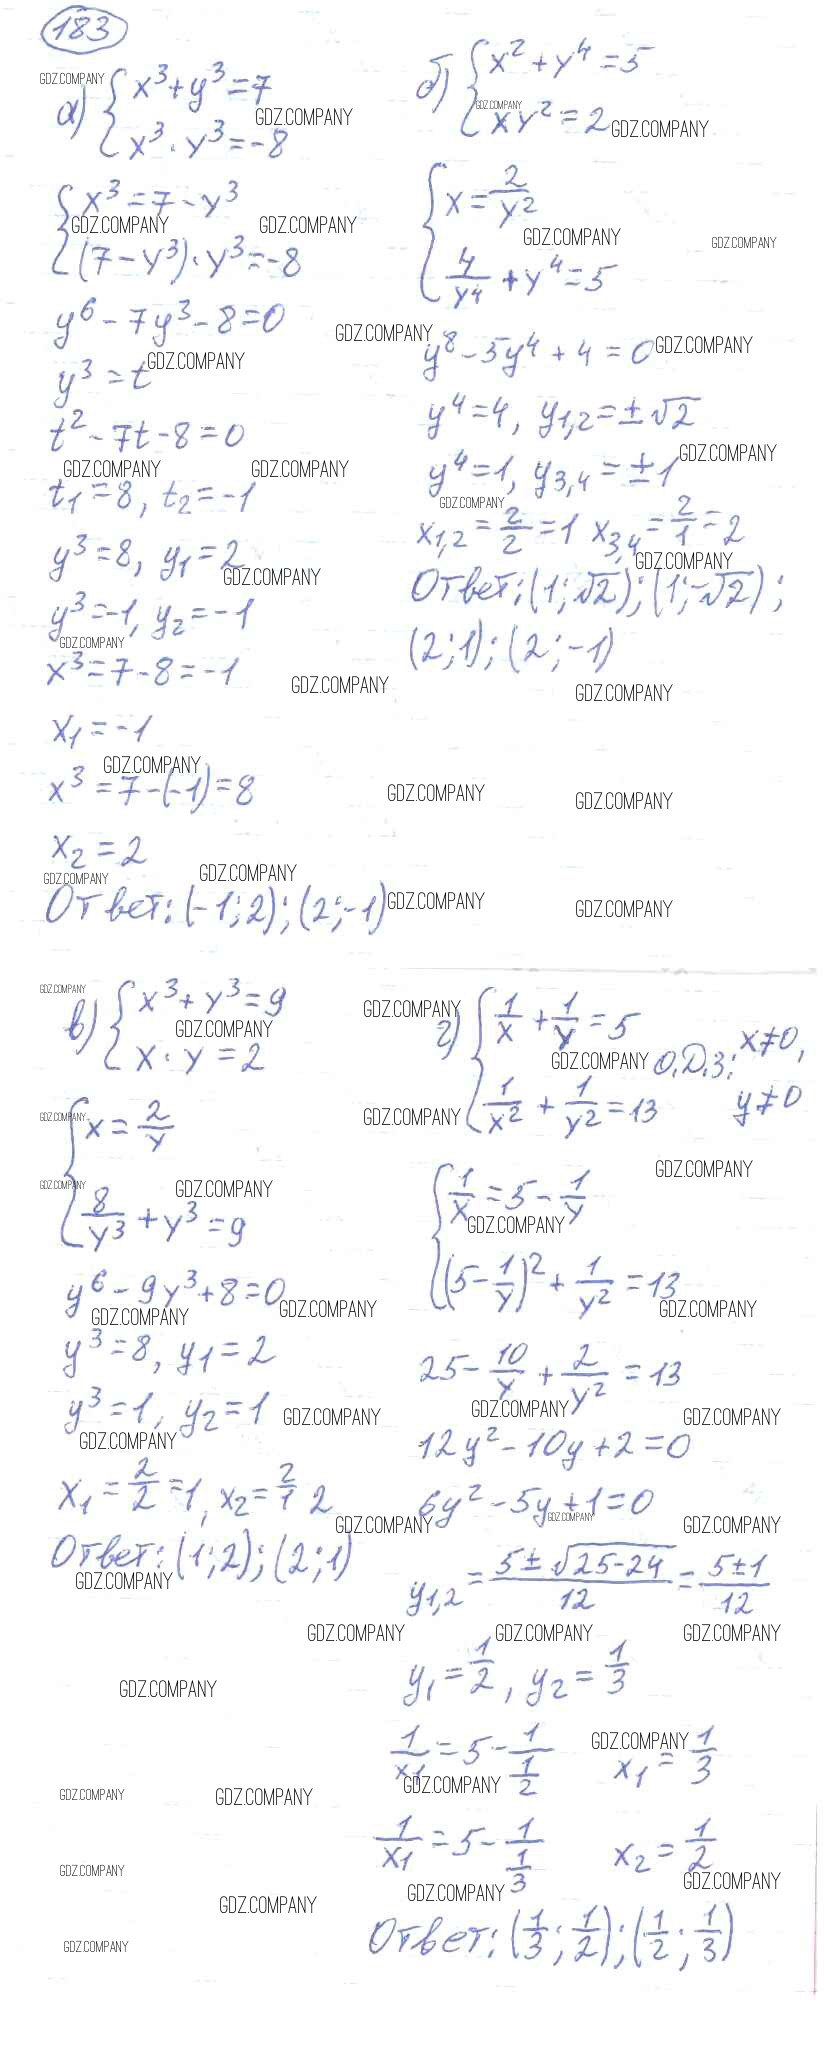 183
а) { x³ + y³ = 7
x³ · y³ = -8
{ x³ = 7 - y³
(7 - y³) · y³ = -8
y⁶ - 7y³ - 8 = 0
y³ = t
t² - 7t - 8 = 0
t₁ = 8, t₂ = -1
y³ = 8, y₁ = 2
y³ = -1, y₂ = -1
x³ = 7 - 8 = -1
x₁ = -1
x³ = 7 - (-1) = 8
x₂ = 2
Ответ: (-1; 2); (2; -1)
б) { x² + y⁴ = 5
xy² = 2
{ x = 2/y²
4/y⁴ + y⁴ = 5
y⁸ - 5y⁴ + 4 = 0
y⁴ = 4, y₁,₂ = ±√2
y⁴ = 1, y₃,₄ = ±1
x₁,₂ = 2/2 = 1 x₃,₄ = 2/1 = 2
Ответ: (1; √2); (1; -√2);
(2; 1); (2; -1)
в) { x³ + y³ = 9
x · y = 2
{ x = 2/y
8/y³ + y³ = 9
y⁶ - 9y³ + 8 = 0
y³ = 8, y₁ = 2
y³ = 1, y₂ = 1
x₁ = 2/2 = 1, x₂ = 2/1 2
Ответ: (1; 2); (2; 1)
г) { 1/x + 1/y = 5 О.Д.З: x ≠ 0,
1/x² + 1/y² = 13 y ≠ 0
{ 1/x = 5 - 1/y
(5 - 1/y)² + 1/y² = 13
25 - 10/y + 2/y² = 13
12y² - 10y + 2 = 0
6y² - 5y + 1 = 0
y₁,₂ = (5 ± √25-24)/12 = (5 ± 1)/12
y₁ = 1/2, y₂ = 1/3
1/x₁ = 5 - 1/(1/2) x₁ = 1/3
1/x₁ = 5 - 1/(1/3) x₂ = 1/2
Ответ: (1/3; 1/2); (1/2; 1/3)
GDZ.COMPANY